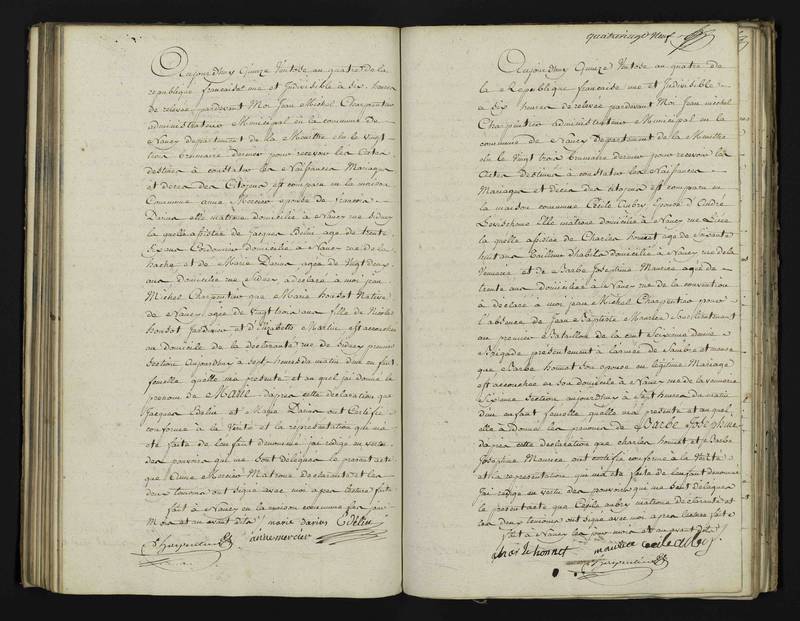 Aujourdhuy Quinze Ventose an quatre de la
republique française une et Indivisible à dix heures
de relevée pardevant Moi Jean Michel Charpentier
administrateur Municipal en la commune de
Nancy departement de la Meurthe élu le Vingt
trois Brumaire dernier pour recevoir les Actes
destinés à constater les Naissances Mariages
et deces des Citoyens est comparu en la maison
Commune anne Mercier épouse de françois
Darius elle matrone domiciliée à Nancy rue Sidney
la quelle assistée de Jacques Edelin age de trente
ans Cordonnier domicilié à Nancy rue de la
hache et de Marie Darius agée de Vingt deux
ans domiciliée rue Sidney à déclaré à moi jean
Michel Charpentier que Marie houdot Native
de Nancy agée de Vingt trois ans fille de Nicolas
houdot Jardinier et d'Elisabeth Martin est accouchée
au domicile de la declarante rue de Sidney premiere
Section aujourdhuy à sept heures du matin d'un enfant
femelle quelle ma présenté et au quel j'ai donné le
prenom de MARIE dapres cette declaration que
Jacques Edelin et Marie Darius ont Certifié
conforme à la Verité et la représentation qui ma
été faite de l'enfant denommé j'ai rédigé en vertu
des pouvoirs qui me sont délégués le présent acte
que Anne Mercier Matrone Declarante et les
deux temoins ont signé avec moi apres lecture faite
fait à Nancy en la maison commune les jour
Mois et an avant dits / marie darius Edelin
Charpentier anne mercier
quatrevingt Neuf
Aujourdhuy Quinze Ventose an quatre de
la République française une et Indivisible
a dix heures de relevée pardevant Moi Jean michel
Charpentier administrateur Municipal en la
commune de Nancy Departement de la Meurthe
élu le Vingt trois Brumaire dernier pour recevoir les
Actes destinés à constater les Naissances
Mariages et décès des citoyens est comparu en
la maison commune Cécile Aubry épouse d'André
Elle matrone domiciliée à Nancy rue
la quelle assistée de Charles honnet age de Soixante
huit ans Tailleur d'habits domicilié à Nancy rue de la
Vennerie et de Barbe Josephine Maurice agée de
trente ans domiciliée à Nancy rue de la convention
à déclaré à moi jean Michel Charpentier pour
l'absence de Jean Baptiste Maurice Souslieutenant
au premier Bataillon de la cent Seisieme Demie
Brigade présentement à l'armée de Sambre et meuse
que Barbe honnet son epouse en légitime Mariage
est accouchée en son domicile à Nancy rue de la vennerie
Sixieme Section aujourdhuy à Sept heures du matin
d'un enfant femelle quelle ma présenté et au quel
elle à Donné les prenoms de BARBE JOSEPHINE
dapres cette declaration que charles honnet et Barbe
Josephine Maurice ont certifié conforme à la Verité
et la représentation qui ma été faite de l'enfant denommé
j'ai rédigé en vertu des pouvoirs qui me sont délégués
le présent acte que Cécile aubry matrone declarante et
les deux temoins ont signé avec moi apres lecture faite
fait à Nancy les jour mois et an avant dits
charle honnet maurice cecile aubry
Charpentier